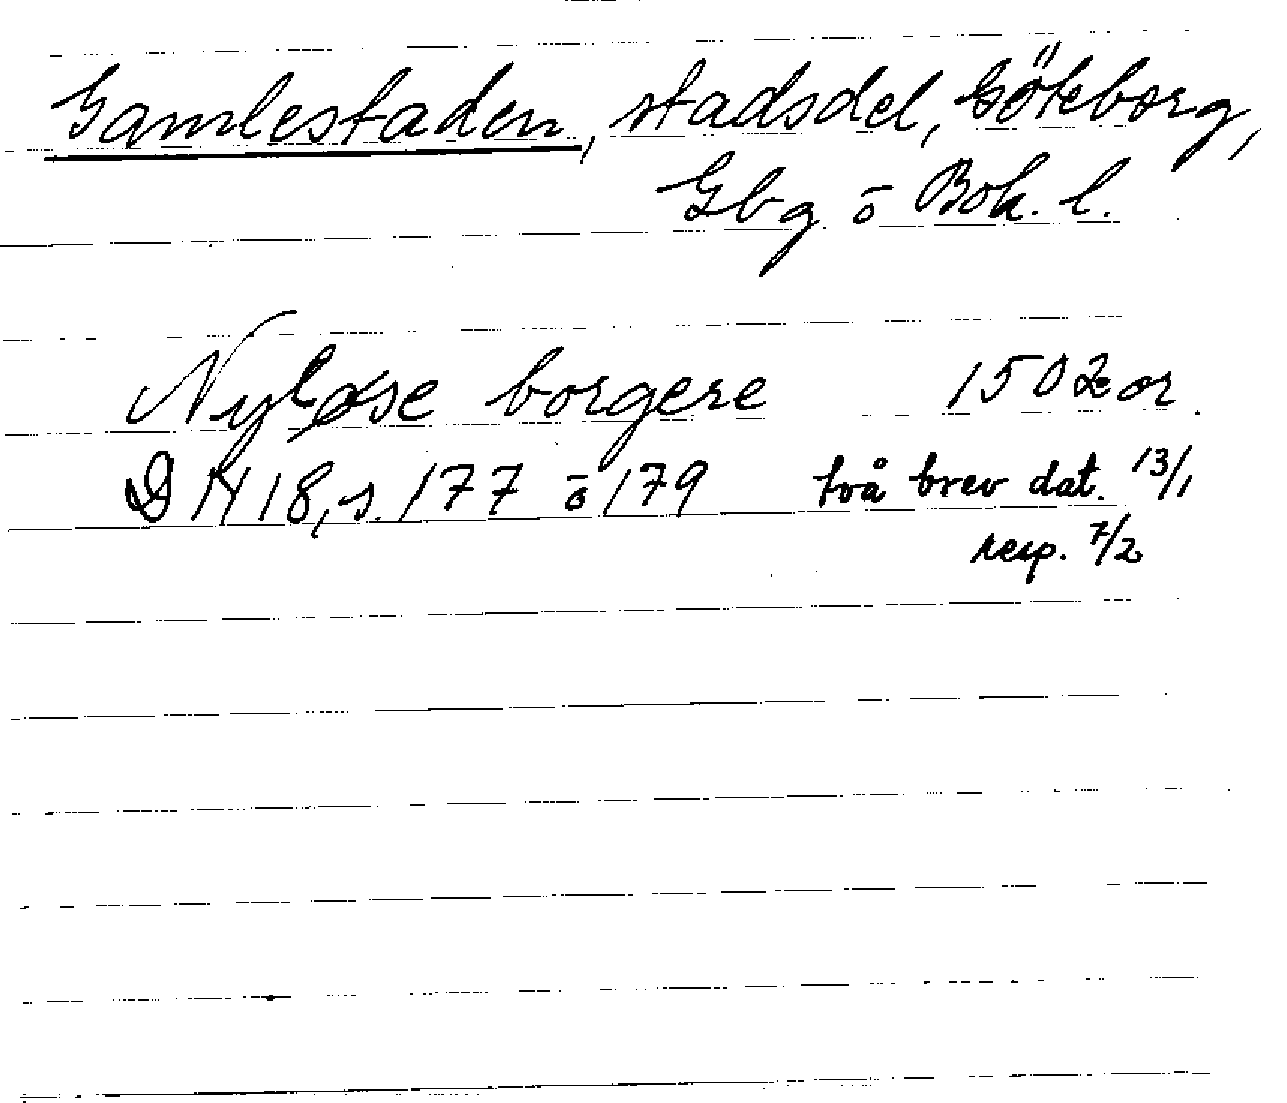 Gamlestaden, stadsdel, Göteborg,
Gbg ō Boh. l.
Nyløse borgere 1502 or.
DN 18, s. 177 ō 179 två brev dat. 13/1
resp. 7/2